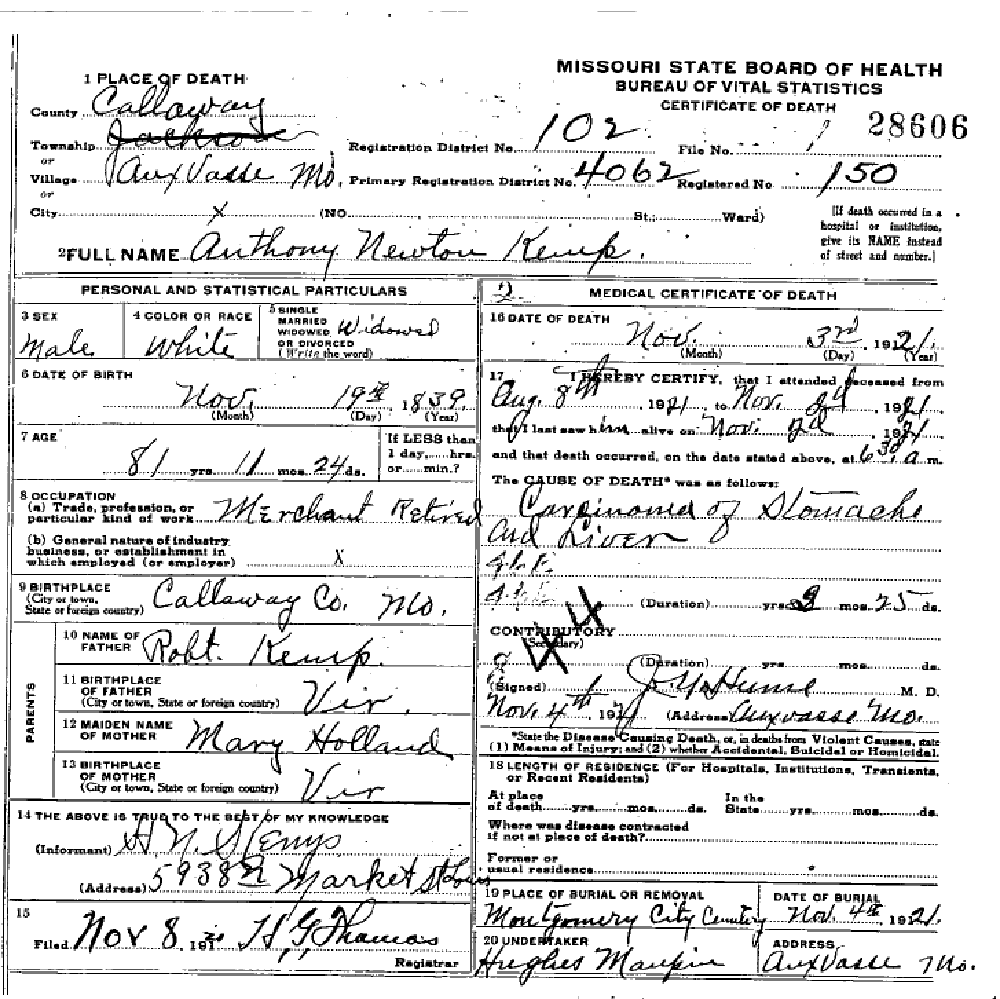 MISSOURI STATE BOARD OF HEALTH
BUREAU OF VITAL STATISTICS
CERTIFICATE OF DEATH
28606
1 PLACE OF DEATH
County Callaway
Township Jackson
or
Village Aux Vasse Mo.
or
City X (NO. St.; Ward)
Registration District No. 102 File No.
Primary Registration District No. 4062 Registered No 150
[If death occurred in a
hospital or institution,
give its NAME instead
of street and number.]
2 FULL NAME Anthony Newton Kemp.
PERSONAL AND STATISTICAL PARTICULARS
3 SEX
Male
4 COLOR OR RACE
White
5 SINGLE
MARRIED
WIDOWED
OR DIVORCED
(Write the word)
Widowed
6 DATE OF BIRTH
Nov. 19th 1839
(Month) (Day) (Year)
7 AGE
81 yrs. 11 mos. 24 ds.
If LESS than
1 day, hrs.
or min.?
8 OCCUPATION
(a) Trade, profession, or
particular kind of work Merchant Retired
(b) General nature of industry
business, or establishment in
which employed (or employer) X
9 BIRTHPLACE
(City or town,
State or foreign country) Callaway Co. Mo.
PARENTS
10 NAME OF
FATHER Robt. Kemp.
11 BIRTHPLACE
OF FATHER
(City or town, State or foreign country) Vir.
12 MAIDEN NAME
OF MOTHER Mary Holland
13 BIRTHPLACE
OF MOTHER
(City or town, State or foreign country) Vir
14 THE ABOVE IS TRUE TO THE BEST OF MY KNOWLEDGE
(Informant) H N
(Address) 5938 Market St Louis
15
Filed Nov 8, 191 H G Thomas
Registrar
2 MEDICAL CERTIFICATE OF DEATH
16 DATE OF DEATH
Nov. 3rd, 1921
(Month) (Day) (Year)
17 I HEREBY CERTIFY, that I attended deceased from
Aug. 8th, 1921, to Nov. 2d, 1921
that I last saw him alive on Nov. 2d, 1921
and that death occurred, on the date stated above, at 6 30 a m.
The CAUSE OF DEATH* was as follows:
Carcinoma of Stomache
and Liver
(Duration) yrs. mos. 25 ds.
44
CONTRIBUTORY
(Secondary)
(Duration) yrs. mos. ds.
(Signed) Hume M. D.
Nov. 4th, 1921 (Address) Auxvasse Mo.
*State the Disease Causing Death, or, in deaths from Violent Causes, state
(1) Means of Injury; and (2) whether Accidental, Suicidal or Homicidal.
18 LENGTH OF RESIDENCE (For Hospitals, Institutions, Transients,
or Recent Residents)
At place
of death yrs. mos. ds.
In the
State yrs. mos. ds.
Where was disease contracted
if not at place of death?
Former or
usual residence
19 PLACE OF BURIAL OR REMOVAL
Montgomery City Cemetery
DATE OF BURIAL
Nov. 4th, 1921
20 UNDERTAKER
Hughes Maupin
ADDRESS
Aux Vasse Mo.